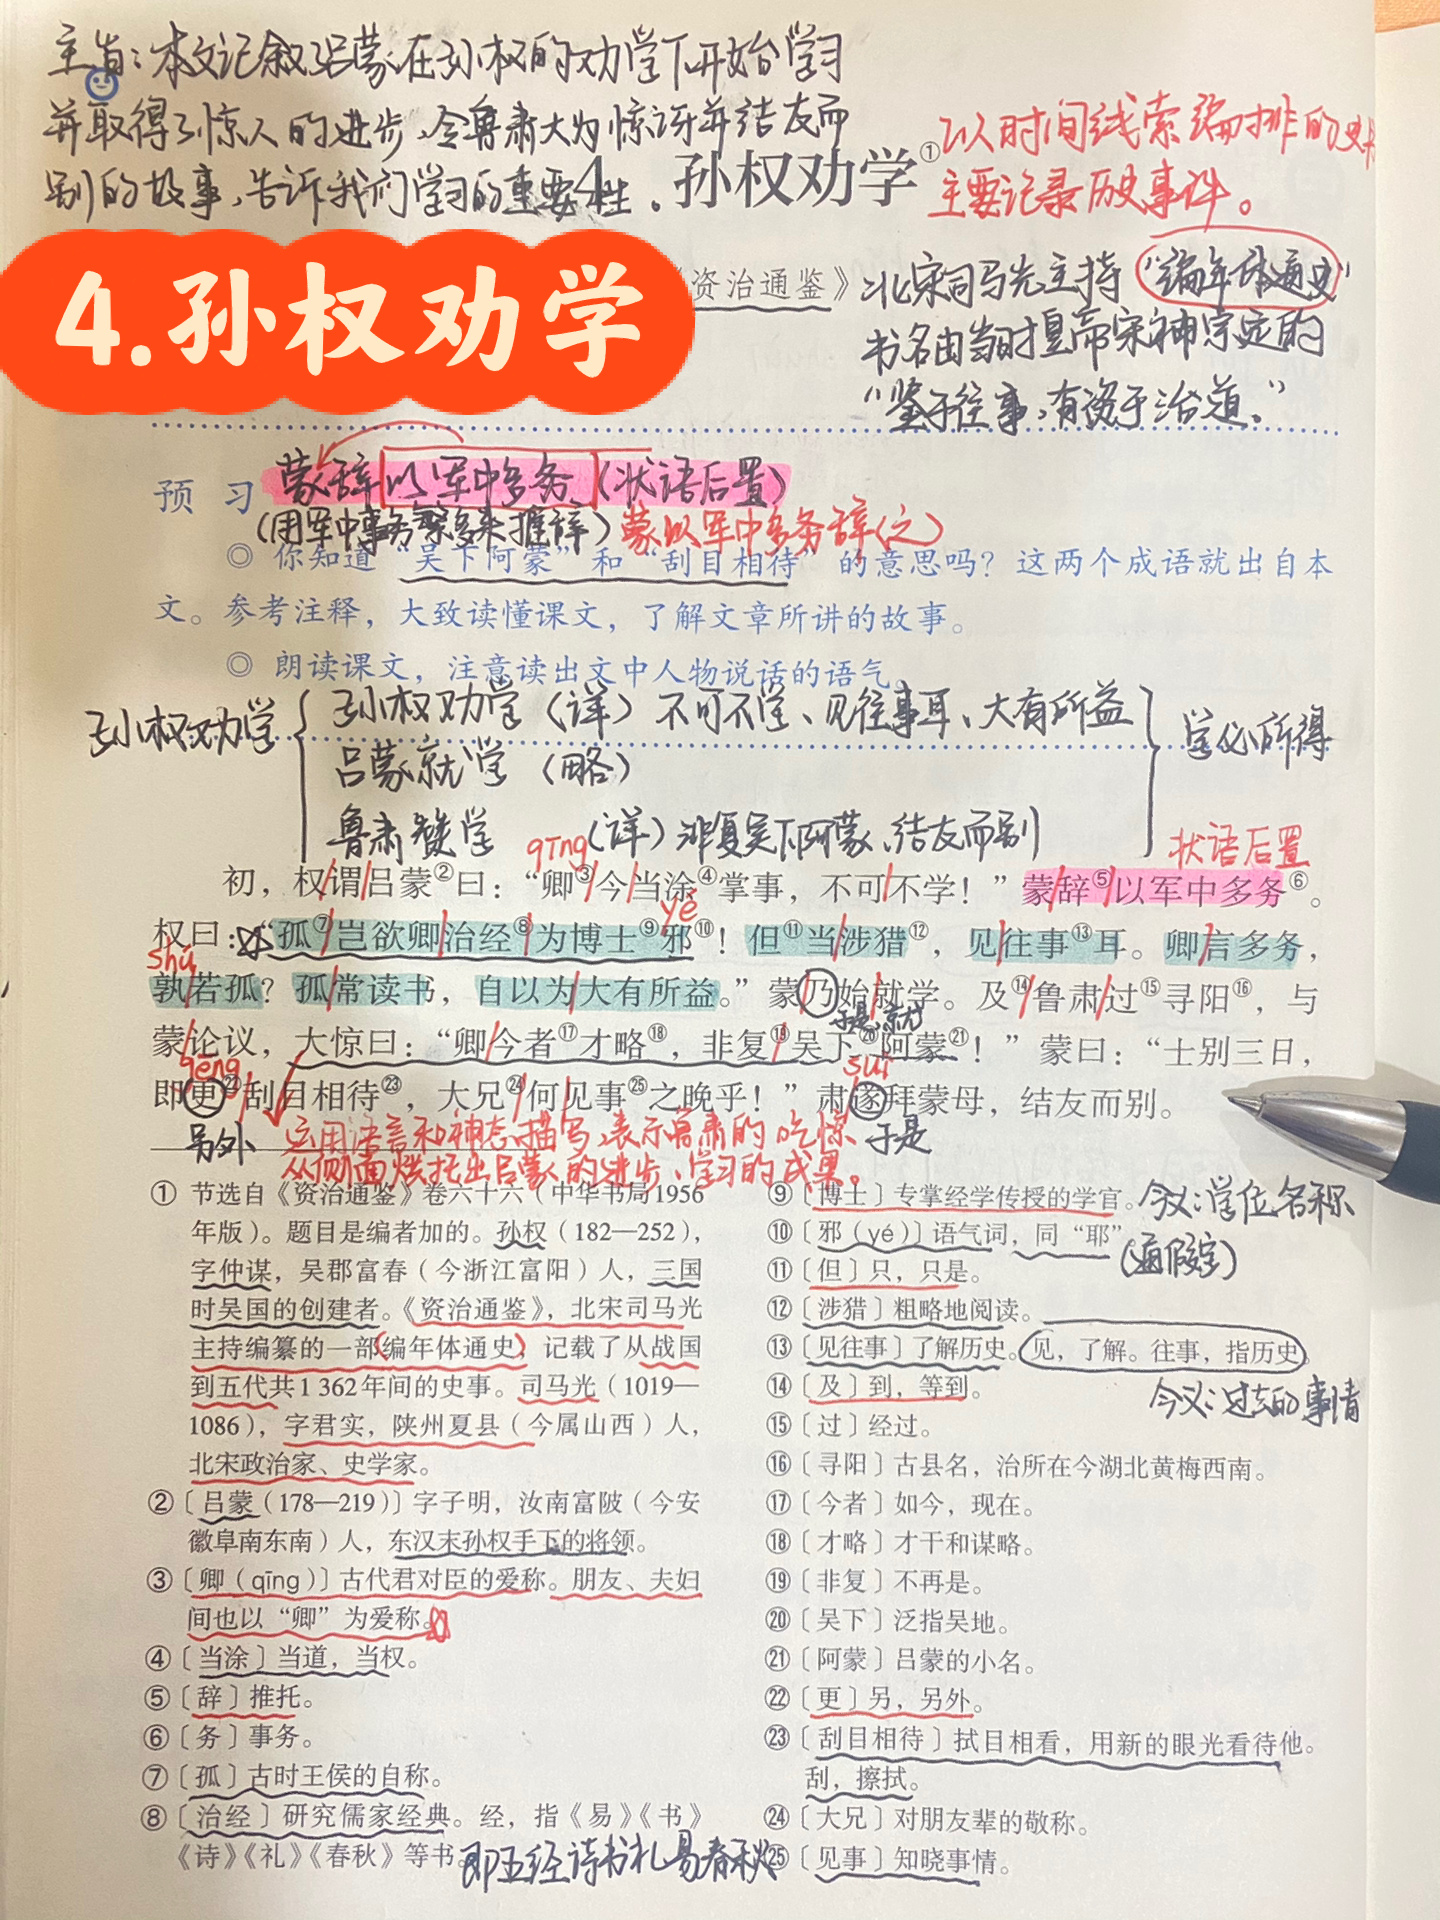 主旨：本文记叙了吕蒙在孙权的劝学下开始学习
并取得了惊人的进步，令鲁肃大为惊讶并结友而
别的故事，告诉我们学习的重要性。
4 孙权劝学①
以时间线索编排的史
主要记录历史事件。
4.孙权劝学
《资治通鉴》
北宋司马光主持“编年体通史”
书名由当时皇帝宋神宗定的
“鉴于往事，有资于治道。”
蒙辞以军中多务（状语后置）
预 习
（用军中事务繁多来推辞）蒙以军中多务辞（之）
◎ 你知道“吴下阿蒙”和“刮目相待”的意思吗？这两个成语就出自本
文。参考注释，大致读懂课文，了解文章所讲的故事。
◎ 朗读课文，注意读出文中人物说话的语气。
孙权劝学
孙权劝学（详）不可不学、见往事耳、大有所益
吕蒙就学（略）
鲁肃赞学（详）非复吴下阿蒙、结友而别
学必所得
qīng
状语后置
初，权谓吕蒙②曰：“卿③今当涂④掌事，不可不学！”蒙辞⑤以军中多务⑥。
yé
权曰：“孤⑦岂欲卿治经⑧为博士⑨邪⑩！但⑪当涉猎⑫，见往事⑬耳。卿言多务，
shú
孰若孤？孤常读书，自以为大有所益。”蒙乃始就学。及⑭鲁肃过⑮寻阳⑯，与
于是，就
蒙论议，大惊曰：“卿今者⑰才略⑱，非复⑲吴下⑳阿蒙㉑！”蒙曰：“士别三日，
gēng
suì
即更㉒刮目相待㉓，大兄㉔何见事㉕之晚乎！”肃遂拜蒙母，结友而别。
另外
运用语言和神态描写，表示鲁肃的吃惊
于是
从侧面烘托出吕蒙的进步、学习的成果。
① 节选自《资治通鉴》卷六十六（中华书局1956
年版）。题目是编者加的。孙权（182—252），
字仲谋，吴郡富春（今浙江富阳）人，三国
时吴国的创建者。《资治通鉴》，北宋司马光
主持编纂的一部编年体通史，记载了从战国
到五代共1 362年间的史事。司马光（1019—
1086），字君实，陕州夏县（今属山西）人，
北宋政治家、史学家。
②〔吕蒙（178—219）〕字子明，汝南富陂（今安
徽阜南东南）人，东汉末孙权手下的将领。
③〔卿（qīng）〕古代君对臣的爱称。朋友、夫妇
间也以“卿”为爱称。
④〔当涂〕当道，当权。
⑤〔辞〕推托。
⑥〔务〕事务。
⑦〔孤〕古时王侯的自称。
⑧〔治经〕研究儒家经典。经，指《易》《书》
《诗》《礼》《春秋》等书。
即五经诗书礼易春秋
⑨〔博士〕专掌经学传授的学官。
今义：学位名称
⑩〔邪（yé）〕语气词，同“耶”。
（通假字）
⑪〔但〕只，只是。
⑫〔涉猎〕粗略地阅读。
⑬〔见往事〕了解历史。见，了解。往事，指历史。
今义：过去的事情
⑭〔及〕到，等到。
⑮〔过〕经过。
⑯〔寻阳〕古县名，治所在今湖北黄梅西南。
⑰〔今者〕如今，现在。
⑱〔才略〕才干和谋略。
⑲〔非复〕不再是。
⑳〔吴下〕泛指吴地。
㉑〔阿蒙〕吕蒙的小名。
㉒〔更〕另，另外。
㉓〔刮目相待〕拭目相看，用新的眼光看待他。
刮，擦拭。
㉔〔大兄〕对朋友辈的敬称。
㉕〔见事〕知晓事情。